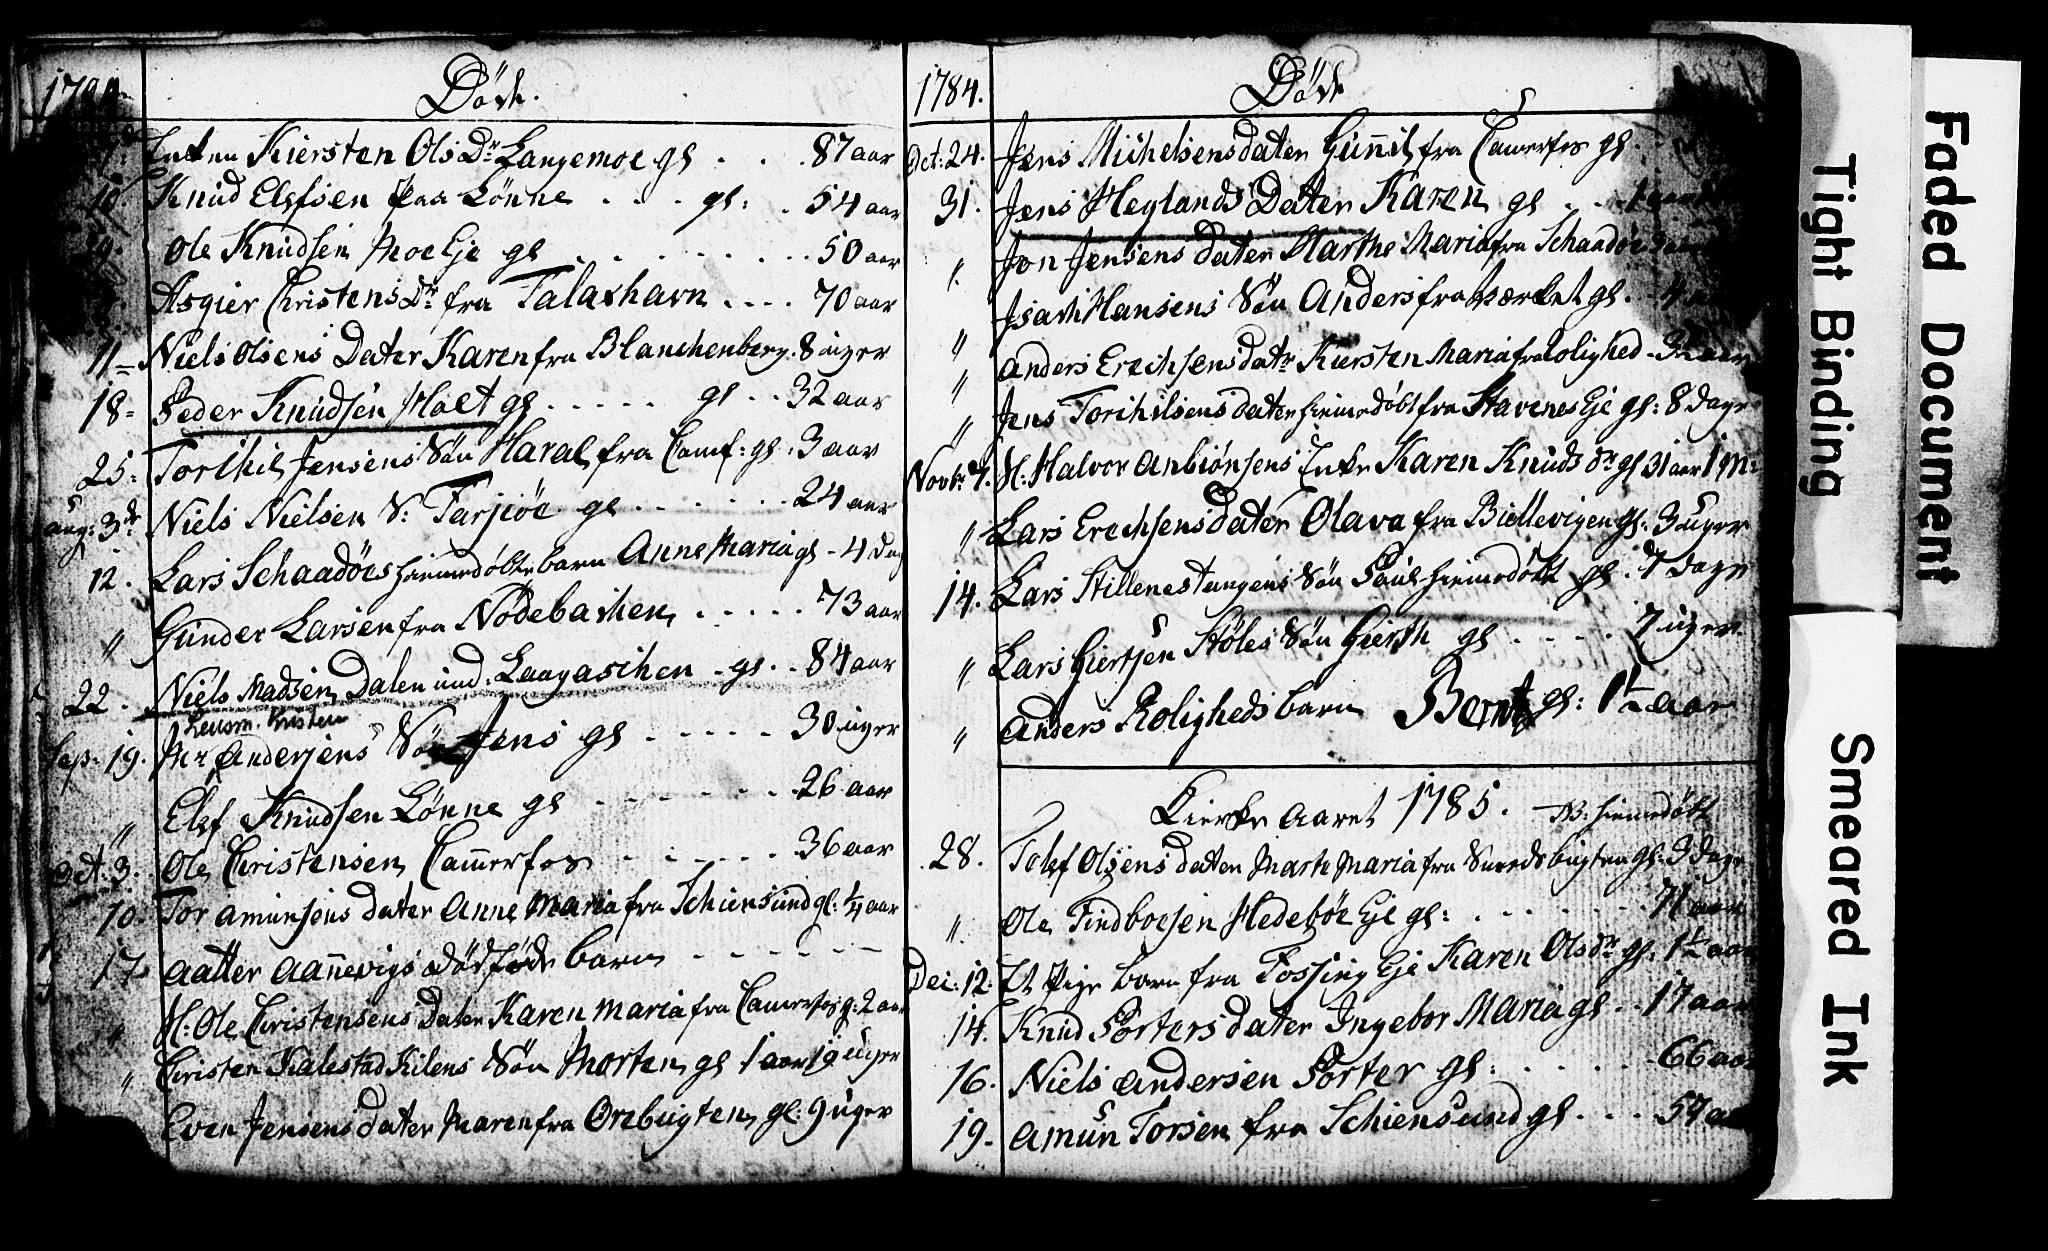 1784.
Döde.
Enken Kiersten Ols Dr Langemoe gl . . . 87 aar
Knud Elefsen paa Lönne . . . gl: . 54 aar
Ole Knudsen Moe Eje gl . . . 50 aar
Asgier Christens Dr fra Talaxhavn . . . 70 aar
11 = Niels Olsens Dater Karen fra Blanchenberg . 8 uger
18 = Peder Knudsen Moet gl . . . gl . . 32 aar
25: Torikil Jensens Sön Haral fra Camf: gl . 3 aar
Aug: 3de Niels Nielsen S: Tarjiöe gl . . . 24 aar
12. Lars Schaadöes hiemedöbte barn Anne Maria gl - 4 dag
" Gunder Larsen fra Nödebachen . . . 73 aar
22. Niels Madsen Dalen und: Langaschen - gl . . 84 aar
Lensm. Kristen
Sep: 19. Mr Andersens Sön Jens gl . . . 30 uger
" Elef Knudsen Lönne gl . . . 26 aar
Oct: 3. Ole Christensen Camerfos . . . 36 aar
10. Tor Amunsens dater Anne Maria fra Schiensund gl: 1/4 aar
17 Aatter Aanevigs dödföde barn - - -
" H: Ole Christensens Dater Karen Maria fra Camerfos g: 2 aar
" Christen Kalestad Kilens Sön Morten gl 1 aar 19 uger
Even Jensens dater Maren fra Örebugten gl: 9 uger
1784.
Döde
Oct: 24. Jens Michelsens dater Gunnil fra Camerfos gl.
31. Jens Heglands Dater Karen gl . . 1 aar
" Jon Jensens dater Marthe Maria fra Schaadöe 3 aar
" Isach Hansens Sön Anders fra Værket gl . . 4
" Anders Erechsens datr Kiersten Maria fra Rolighed - 3 1/2 aar
" Jens Torichilsens dater hiemedöbt fra Stavenes Eje gl: 8 dage
Novbr 7. H: Halvor Anbiönsens Enke Karen Knuds dr gl 31 aar 1 m:
" Lars Erechsens dater Olava fra Biellevigen gl: 3 uger
14. Lars Stillenestangens Sön Paul hiemedöbt gl . 7 dage
" Lars Giertsen Stöles Sön Gierth gl . . . 7 uger
" Anders Roligheds barn Bernt gl: 1 1/2 aar
Kierke Aaret 1785. NB: hiemedöbt
28. Tolef Olsens dater Marte Maria fra Sneedsbugten gl: 3 dage
" Ole Findboesen Hedeböe Eje gl: . . . 71 aar
Dec: 12: Et Pige barn fra Fossing Eje Karen Olsdr gl: 1 1/2 aar
14. Knud Porters dater Ingebor Maria gl . . 17 aar
16. Niels Andersen Porter gl: . . . 66 aar
19. Amun Torsen fra Schiensund gl . . . 57 a
Faded Document
Tight Binding
Smeared Ink